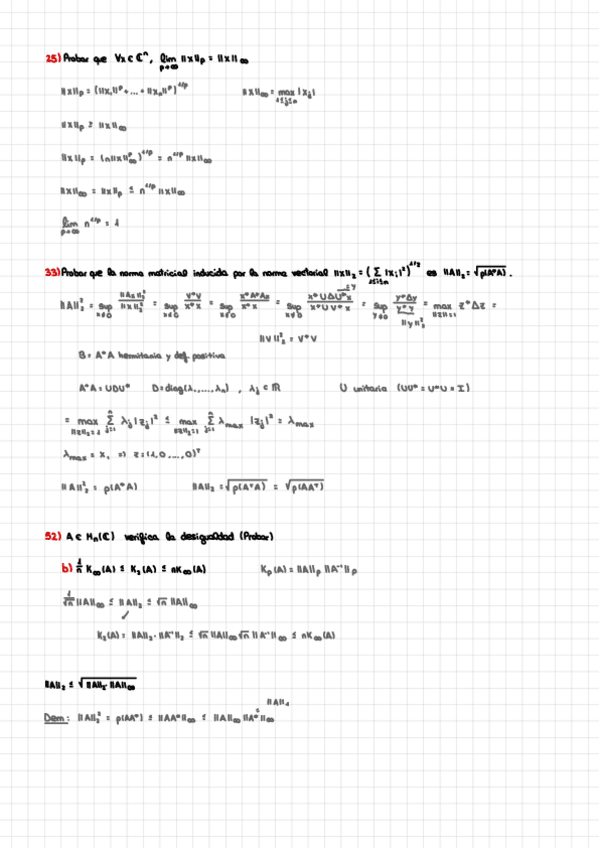 25) Probar que ∀x ∈ ℂⁿ, lim p→∞ ||x||p = ||x||∞
||x||p = (||x₁||ᵖ + ... + ||xn||ᵖ)^1/p ||x||∞ = max 1≤j≤n |xj|
||x||p ≥ ||x||∞
||x||p = (n||x||∞ᵖ)^1/p = n^1/p ||x||∞
||x||∞ = ||x||p ≤ n^1/p ||x||∞
lim p→∞ n^1/p = 1
33) Probar que la norma matricial inducida por la norma vectorial ||x||₂ = (Σ 1≤i≤n |xi|²)^1/2 es ||A||₂ = √ρ(A*A).
||A||₂² = sup x≠0 ||Ax||₂²/||x||₂² = sup x≠0 v*v/x*x = sup x≠0 x*A*Ax/x*x = sup x≠0 x*UΔU*x/x*UU*x = sup y≠0 y*Δy/y*y = max ||z||=1 z*Δz =
||v||₂² = v*v
B = A*A hermitania y def. positiva
A*A = UDU* D=diag(λ₁,...,λn) , λj ∈ ℝ U unitaria (UU* = U*U = I)
= max ||z||₂=1 Σ j=1 n λj |zj|² ≤ max ||z||₂=1 Σ j=1 n λmax |zj|² = λmax
λmax = x, ⇒ z=(1,0,...,0)ᵀ
||A||₂² = ρ(A*A) ||A||₂ = √ρ(A*A) = √ρ(AA*)
52) A ∈ Mn(ℂ) verifica la desigualdad (Probar)
b) 1/n K∞(A) ≤ K₂(A) ≤ nK∞(A) Kp(A) = ||A||p ||A⁻¹||p
1/√n ||A||∞ ≤ ||A||₂ ≤ √n ||A||∞
✓
K₂(A) = ||A||₂·||A⁻¹||₂ ≤ √n ||A||∞ √n ||A⁻¹||∞ ≤ nK∞(A)
||A||₂ ≤ √||A||₁·||A||∞
||A||₁
Dem: ||A||₂² = ρ(AA*) ≤ ||AA*||∞ ≤ ||A||∞ ||A*||∞